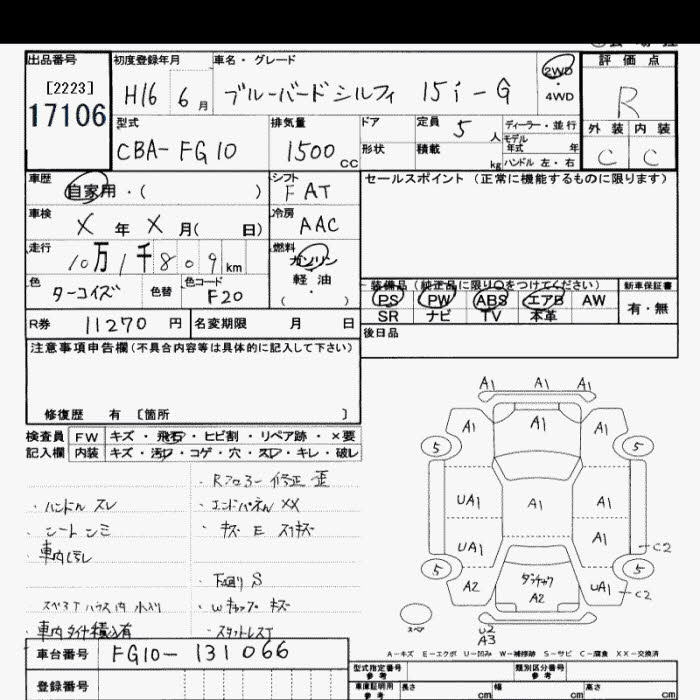 出品番号 初度登録年月 車名・グレード 2WD 評価点
[2223] H16 6月 ブルーバードシルフィ 15i-G ・4WD R
17106 型式 排気量 ドア 定員 5人 ディーラー・並行 外装 内装
CBA-FG10 1500cc 形状 積載 kg モデル年式 年 C C
ハンドル 左・右
車歴 自家用・( ) シフト FAT セールスポイント (正常に機能するものに限ります)
車検 X年X月( 日) 冷房 AAC
走行 10万1千809km 燃料 ガソリン
色 ターコイズ 色替 色コード F20 軽油 ・( )
装備品 (純正品に限り○をつけてください) 新車保証書
PS PW ABS エアB AW 有・無
SR ナビ TV 本革
R券 11270円 名変期限 月 日 後日品
注意事項申告欄(不具合内容等は具体的に記入して下さい)
修復歴 有 [箇所 ]
検査員 FW キズ・飛石・ヒビ割・リペア跡・×要
記入欄 内装 キズ・汚レ・コゲ・穴・スレ・キレ・破レ
・Rフロアー修正 歪
・ハンドル スレ ・エンドパネルXX
・シート シミ ・キズ E スリキズ
・車内汚レ
・下廻りS
スペアTハウス内 水入り ・Wキャップ キズ
・車内タイヤ積込有 ・スタットレスT
A1 A1 A1
A1 A1 A1
5 5
UA1 A1 A1
UA1 A1 C2
5 5
A2 ダンチック A2 UA1 C2
スペア U2
A3
A-キズ E-エクボ U-凹み W-補修跡 S-サビ C-腐食 XX-交換済
車台番号 FG10-131066
型式指定番号 参考 類別区分番号 参考
登録番号 車庫証明用 参考 長さ cm 幅 cm 高さ cm